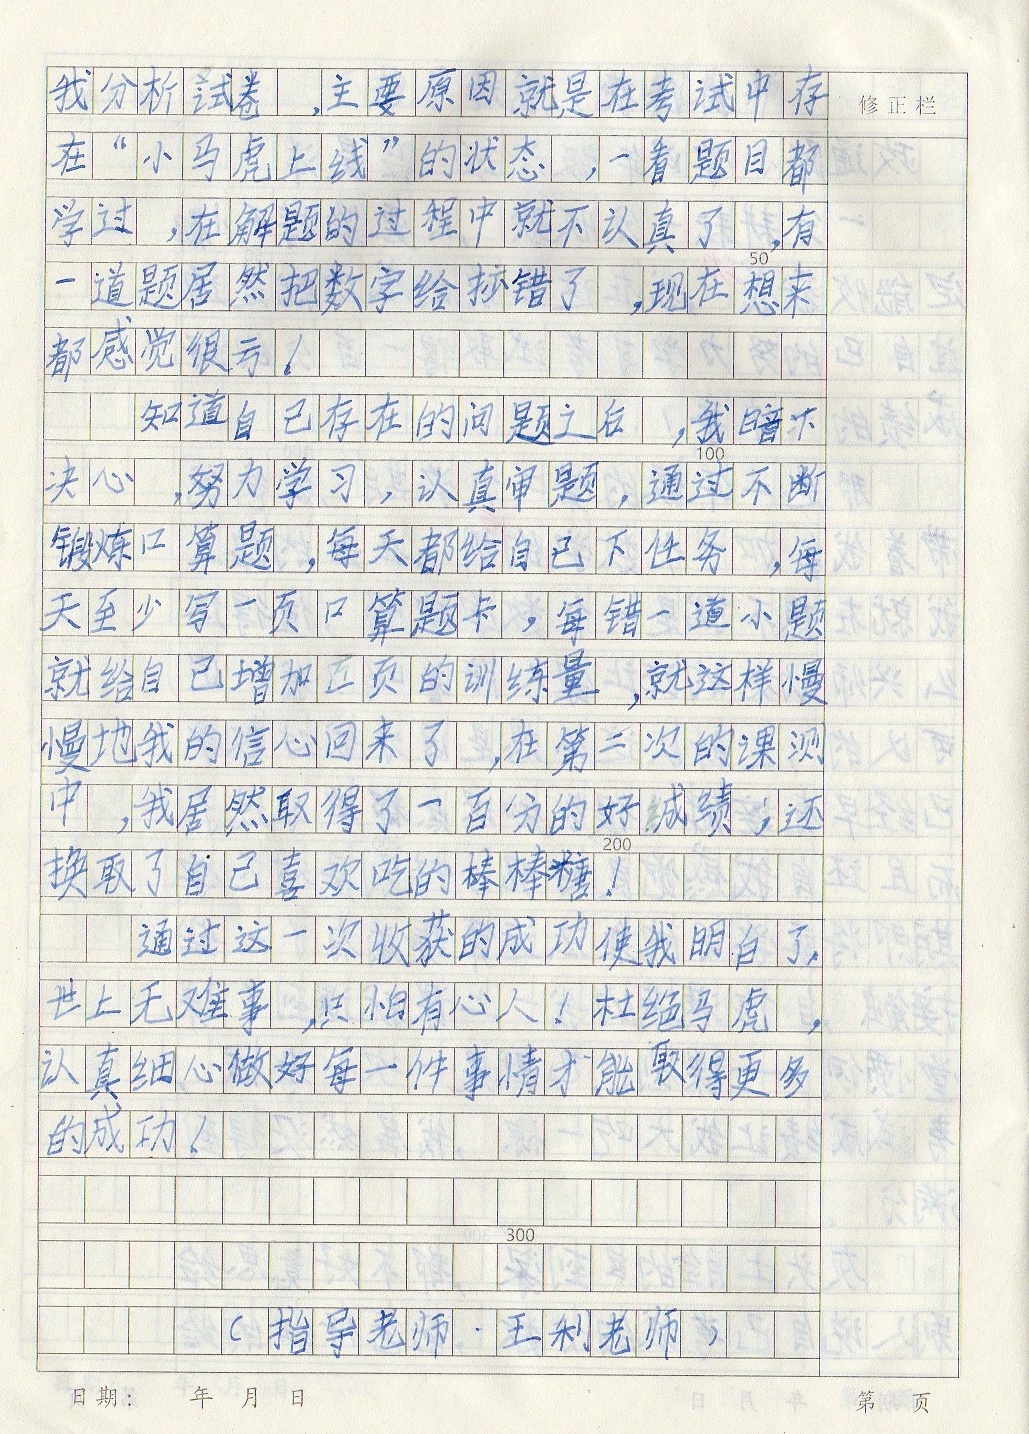 我分析试卷,主要原因就是在考试中存
修正栏
在“小马虎上线”的状态,一看题目都
学过,在解题的过程中就不认真了,有
50
一道题居然把数字给抄错了,现在想来
都感觉很亏!
知道自己存在的问题之后,我暗下
100
决心,努力学习,认真审题,通过不断
锻炼口算题,每天都给自己下任务,每
天至少写一页口算题卡,每错一道小题
就给自己增加 页的训练量,就这样慢
慢地我的信心回来了,在第二次的课测
中,我居然取得了一百分的好成绩;还
200
换取了自己喜欢吃的棒棒糖!
通过这一次收获的成功使我明白了,
世上无难事,只怕有心人!杜绝马虎,
认真细心做好每一件事情才能取得更多
的成功!
300
(指导老师·王利老师)
日期: 年 月 日
第 页